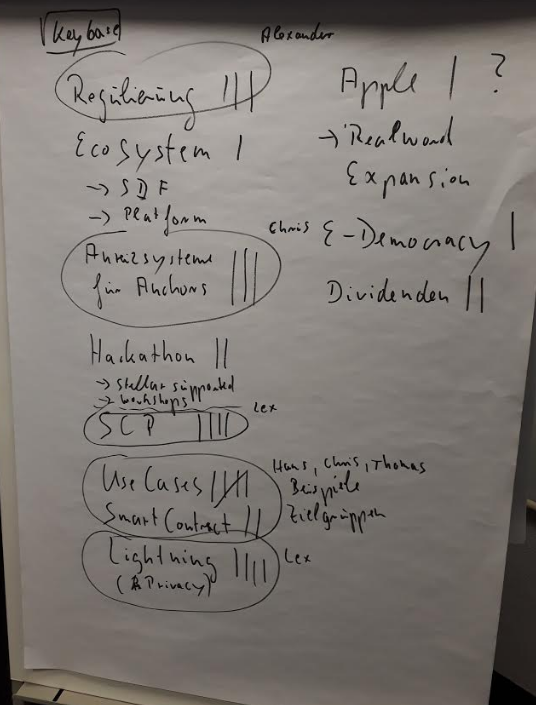 Keybase
Alexander
Regulierung |||
Ecosystem |
→ SDF
→ Platform
Anreizsysteme
für Anchors |||
Hackathon ||
→ Stellar supported
→ workshops
SCP ||||
Lex
Use Cases ||||
Smart Contract ||
Hans, Chris, Thomas
Beispiele
Zielgruppen
Lightning ||||
(& Privacy)
Lex
Apple | ?
→ Realword
Expansion
Chris
E-Democracy |
Dividenden ||